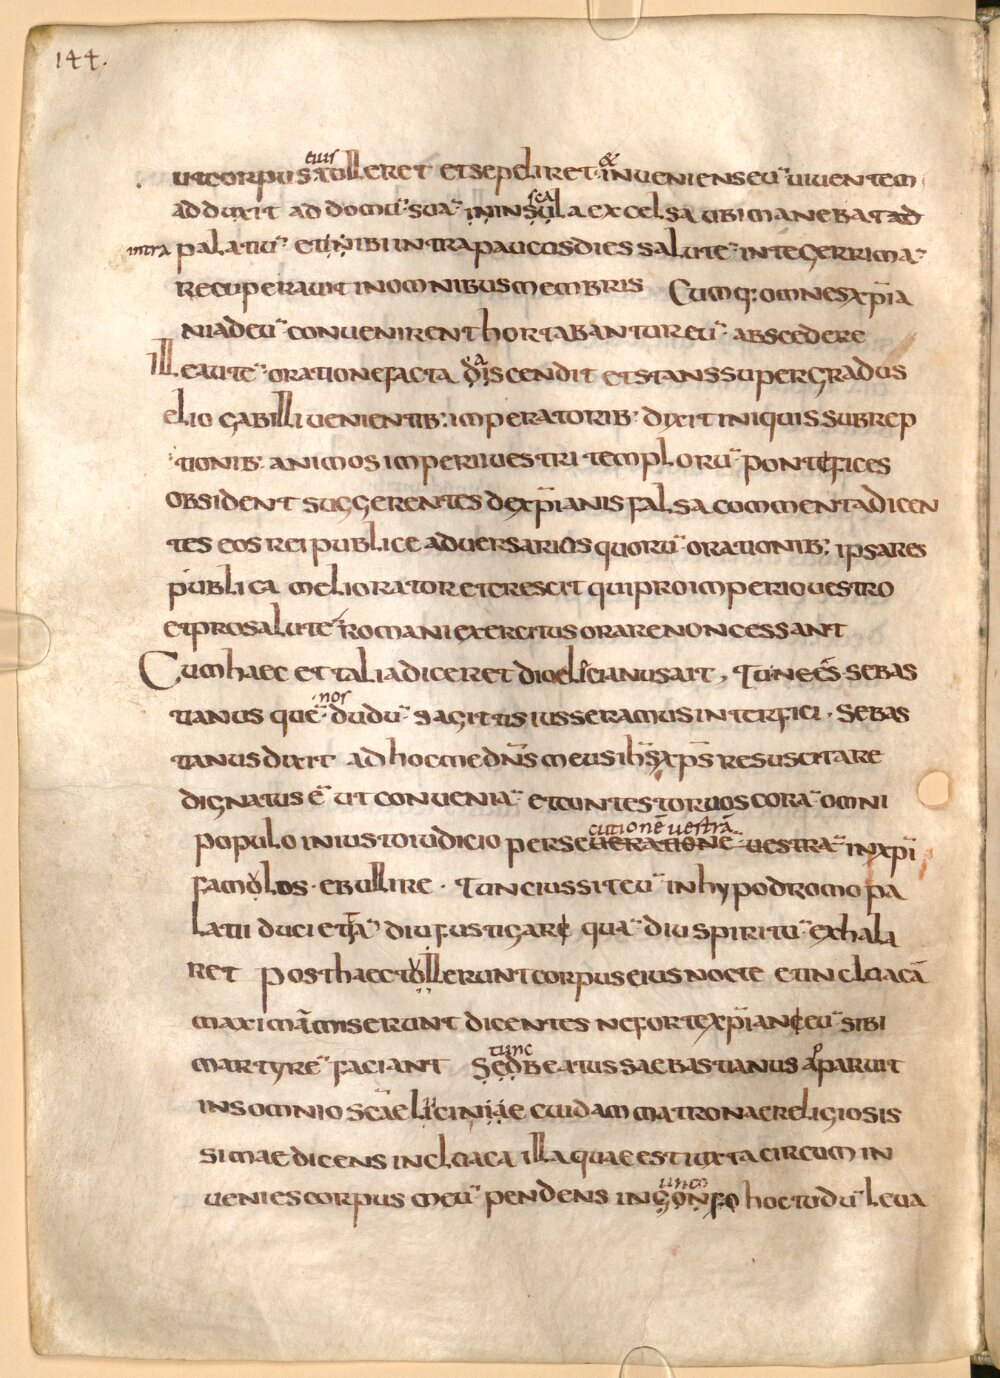 144.
eius
ut corpus tolleret et sepeliret & inueniens eu¯ uiuentem
adduxit ad domu¯ sua¯ in insula excelsa ubi manebat ad
sca
intra palatiu¯ et inibi intra paucus dies salute¯ integerrima¯
recuperauit in omnibus membris Cumq: omnes xp̄ia
ni ad eu¯ conuenirent hortabantur eu¯ abscedere
Ille aute¯ oratione facta discendit et stans super gradus
a
elio gabilli uenientib: imperatorib: dixit iniquis subrep
tionib: animos imperii uestri temploru¯ pontefices
obsident suggerentes de xp̄ianis falsa commenta dicen
tes eos rei publice aduersarios quoru¯ orationib: ipsa res
publica melioratur et crescit qui pro imperio uestro
et pro salute romani exercitus orare non cessant
Cum haec et talia diceret dioclicianus ait, Tu ne es sebas
nos
tianus que¯ dudu¯ sagittis iusseramus interfici. Sebas
tianus dixit ad hoc me dn̄s meus ihs xp̄s resuscitare
dignatus e¯ ut conuenia¯ et contestor uos cora¯ omni
populo iniusto iudicio perseueratione uestra¯ in xp̄i
cutionē uestrā
famolos ebullire. Tunc iussit eu¯ in hypodromo pa
latii duci et ta¯ diu fustigare qua¯ diu spiritu¯ exhala
ret post haec tollerunt corpus eius nocte et in cloacā
maximā miserunt dicentes ne forte xp̄iane eu¯ sibi
martyre¯ faciant Sed beatus saebastianus aparuit
tunc
in somnio scae liciniae cuidam matronae religiosis
simae dicens in cloaca illa quae est iuxta circum in
uenies corpus meu¯ pendens in gonfo hoc tu du¯ leua
unco